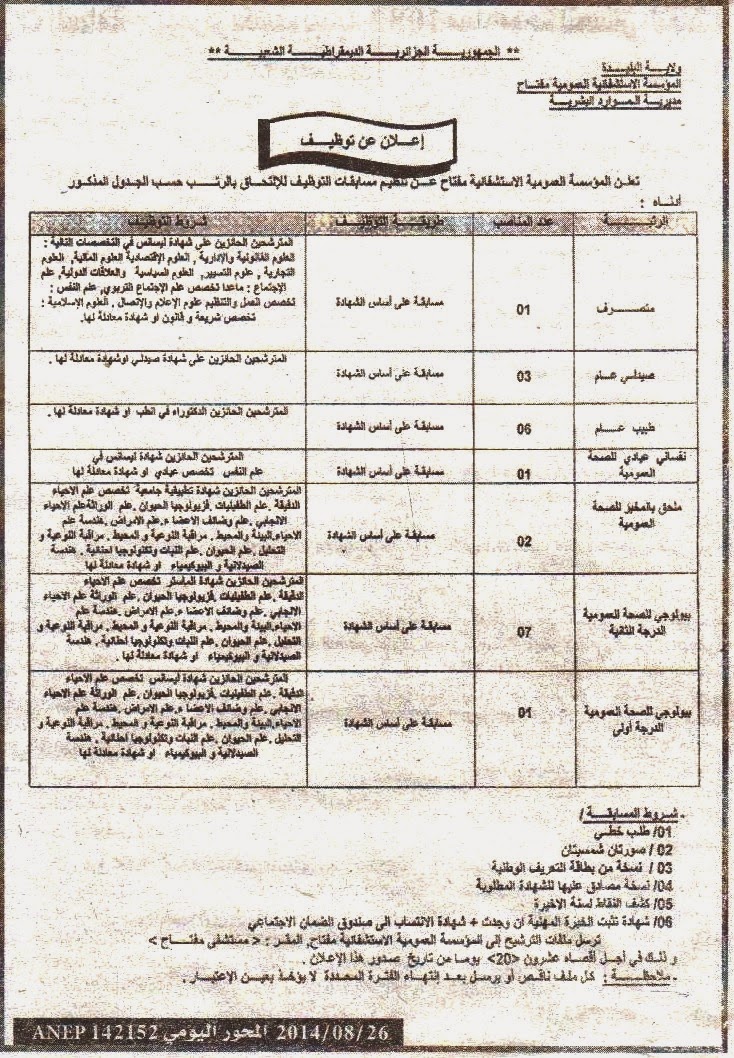 ** الجمهوريـــة الجزائريـــة الديمقراطيـــة الشعبيـــة **
ولايـة البليـدة
المؤسسة الاستشفائية العمومية مفتـاح
مديرية المـوارد البشرية
إعـلان عن توظيـف
تعلن المؤسسة العمومية الاستشفائية مفتاح عـن تنظيم مسابقات التوظيف للإلتحاق بالرتـب حسب الجدول المذكـور
أدنـاه :
الرتبـــة عدد المناصب طريقـــة التوظيف شروط التوظيف
متصـــرف 01 مسابقـة على أساس الشهادة
المترشحين الحائزين على شهادة ليسانس في التخصصات التالية :
العلوم القانونية والإدارية , العلوم الإقتصادية العلوم المالية, العلوم
التجارية , علوم التسيير, العلوم السياسية والعلاقات الدولية, علم
الإجتماع : ماعدا تخصص علم الإجتماع التربوي, علم النفس :
تخصص العمل والتنظيم علوم الإعلام والإتصال . العلوم الإسلامية :
تخصص شريعة و قانون او شهادة معادلة لها.
صيدلـي عـام 03 مسابقـة على أساس الشهادة المترشحين الحائزين على شهادة صيدلي اوشهادة معادلة لها .
طبيب عــام 06 مسابقـة على أساس الشهادة المترشحين الحائزين الدكتوراه في الطب او شهادة معادلة لها.
نفساني عيادي للصحة
العمومية 01 مسابقـة على أساس الشهادة
المترشحين الحائزين شهادة ليسانس في
علم النفس تخصص عيادي او شهادة معادلة لها
ملحق بالمخبر للصحة
العمومية 02 مسابقـة على أساس الشهادة
المترشحين الحائزين شهادة تطبيقية جامعية تخصص علم الاحياء
الدقيقة .علم الطفيليات .فزيولوجيا الحيوان. علم الوراثة علم الاحياء
الانجابي .علم وضائف الاعضاء.علم الامراض .هندسة علم
الاحياء.البيئة والمحيط. مراقبة النوعية و المحيط . مراقبة النوعية و
التحليل .علم الحيوان. علم النبات وتكنولوجيا احفائية . هندسة
الصيدلانية و البيوكيمياء او شهادة معادلة لها
بيولوجي للصحة العمومية
الدرجة الثانية 07 مسابقـة على أساس الشهادة
المترشحين الحائزين شهادة الماستر تخصص علم الاحياء
الدقيقة .علم الطفيليات .فزيولوجيا الحيوان. علم الوراثة علم الاحياء
الانجابي .علم وضائف الاعضاء.علم الامراض. هندسة علم
الاحياء.البيئة والمحيط. مراقبة النوعية و المحيط. مراقبة النوعية و
التحليل .علم الحيوان. علم النبات وتكنولوجيا احفائية . هندسة
الصيدلانية و البيوكيمياء او شهادة معادلة لها .
بيولوجي للصحة العمومية
الدرجة أولى 01 مسابقـة على أساس الشهادة
المترشحين الحائزين شهادة ليسانس تخصص علم الاحياء
الدقيقة .علم الطفيليات .فزيولوجيا الحيوان. علم الوراثة علم الاحياء
الانجابي .علم وضائف الاعضاء.علم الامراض. هندسة علم
الاحياء.البيئة والمحيط. مراقبة النوعية و المحيط. مراقبة النوعية و
التحليل .علم الحيوان. علم النبات وتكنولوجيا احفائية . هندسة
الصيدلانية و البيوكيمياء او شهادة معادلة لها
- شـروط المسابقـــة /
01/ طلب خطـي
02 / صورتان شمسيتان
03 / نسخة من بطاقة التعريف الوطنية
04/ نسخة مصادق عليها للشهادة المطلوبة
05/ كشف النقاط لسنة الاخيرة
06/ شهادة تثبت الخبرة المهنية ان وجدت + شهادة الانتساب الى صندوق الضمان الاجتماعي
ترسل ملفات الترشيح إلى المؤسسة العمومية الاستشفائية مفتاح, المقر : < مستشفى مفتـاح >
و ذلك في أجل أقصاه عشرون <20> يومـا من تاريخ صدور هذا الإعلان .
- ملاحظـــة : كل ملف ناقص أو يرسل بعـد إنتهـاء الفترة المحددة لا يؤخـذ بعيـن الإعتبـار .
ANEP 142152 المحور اليومي 2014/08/26